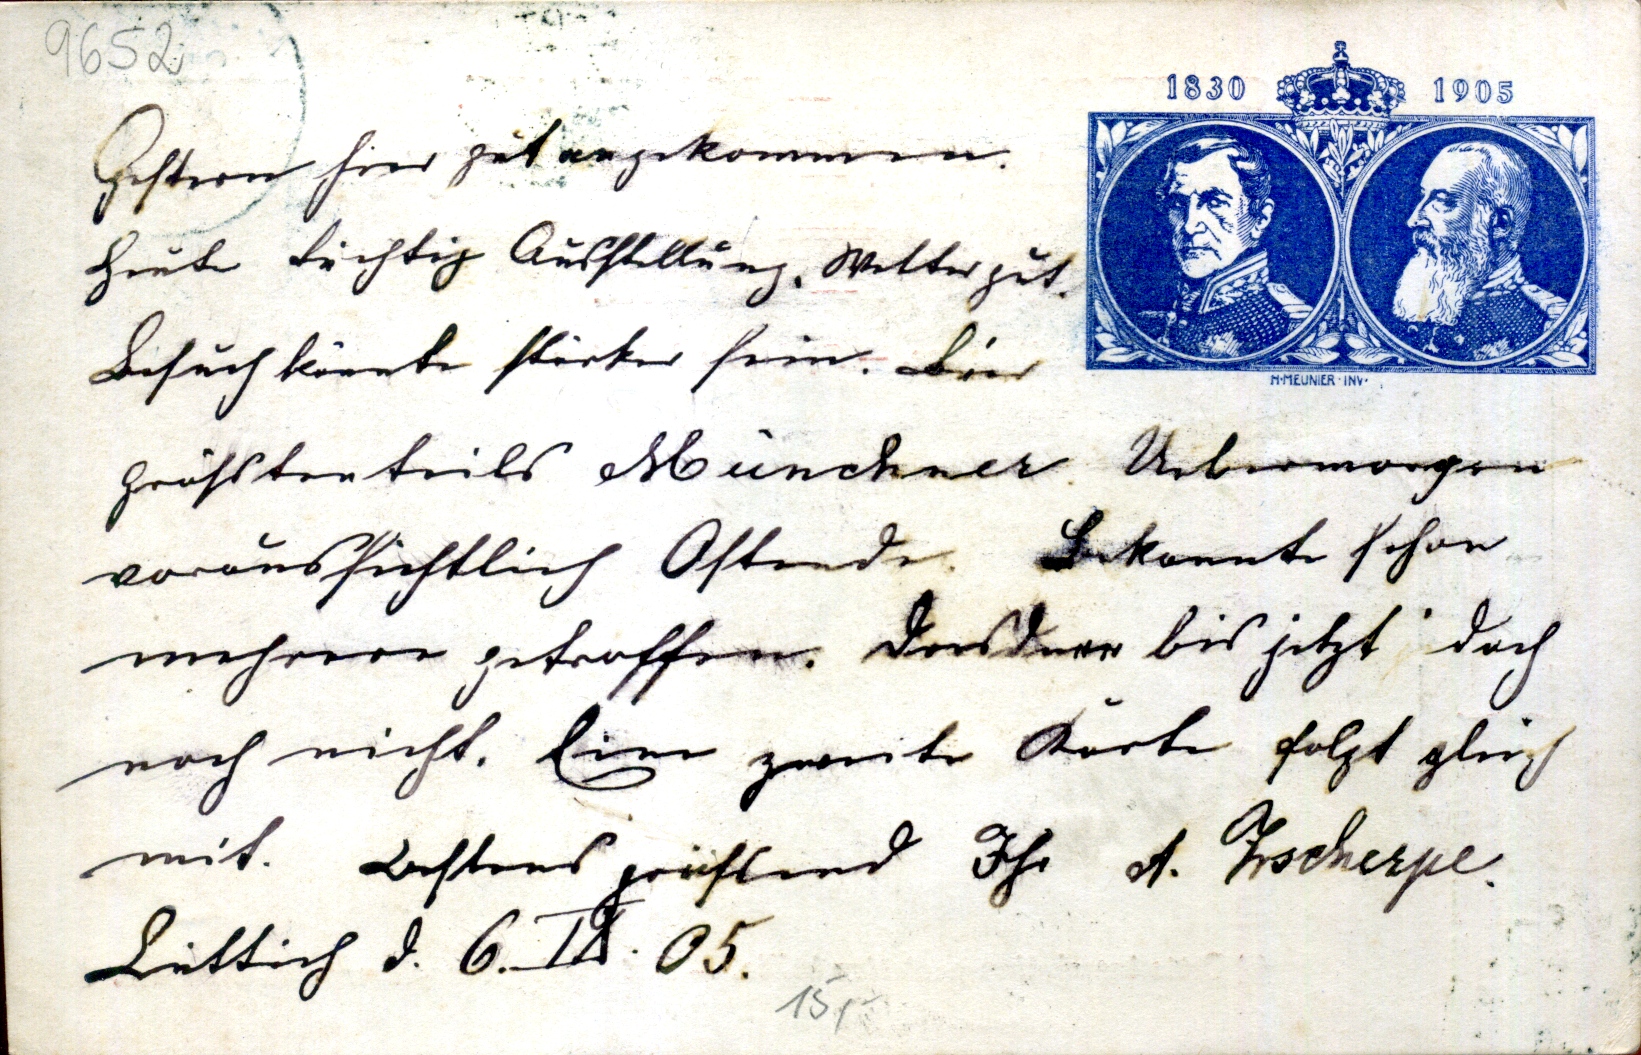 9652
1830 1905
Gestern hier gut angekommen.
Heute tüchtig Ausstellung. Wetter gut.
Besuch könnte stärker sein. Bier
grösstenteils Münchner. Uebermorgen
voraussichtlich Ostende. Bekannte schon
mehrere getroffen. Dresdner bis jetzt doch
noch nicht. Eine zweite Karte folgt gleich
mit. Bestens grüssend Ihr A. Zscherpe.
Lüttich d. 6. IX. 05.
H·MEUNIER·INV·
15,